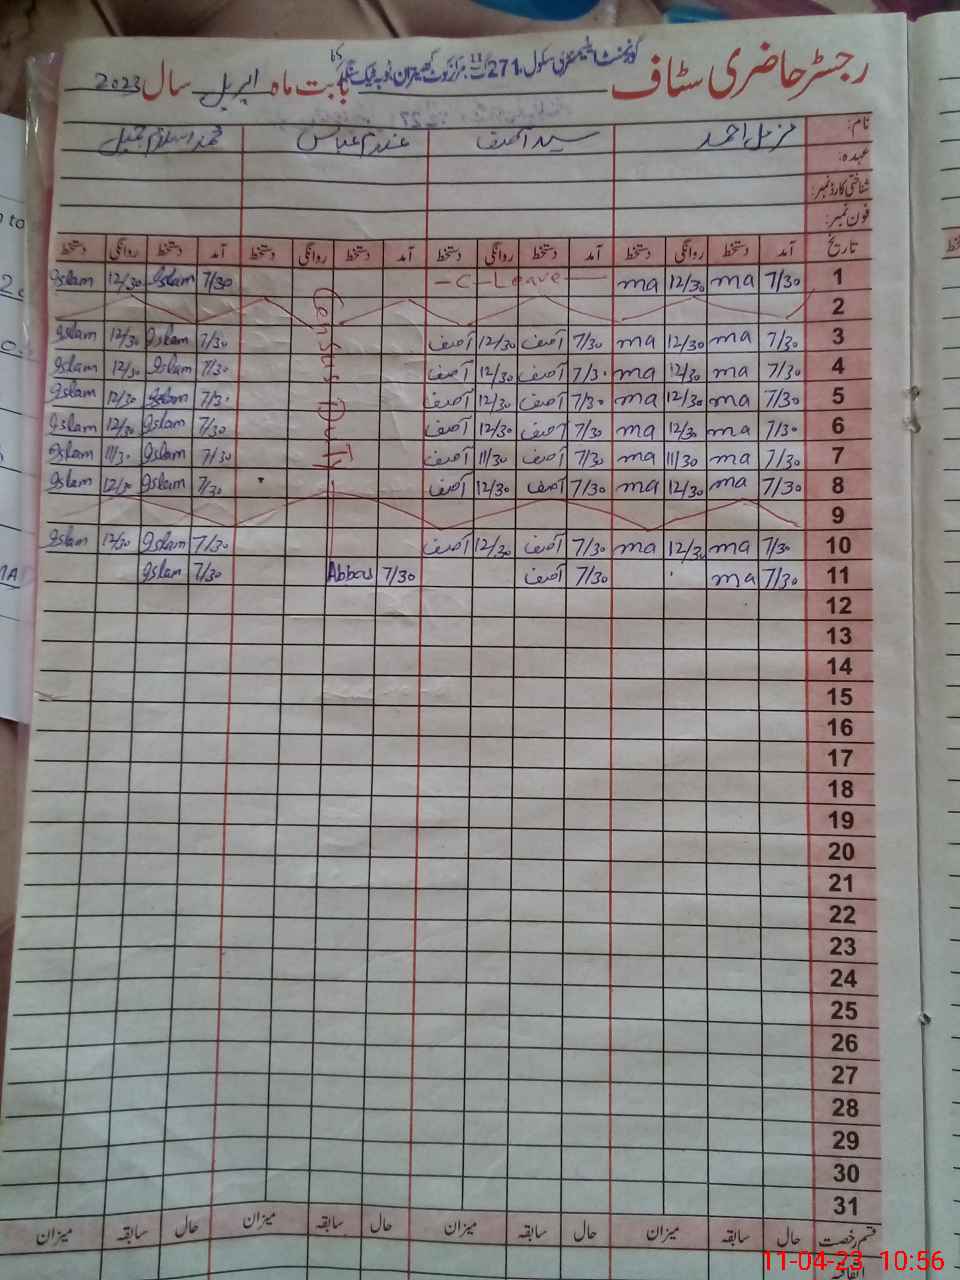 رجسٹر حاضری سٹاف گورنمنٹ ایلیمنٹری سکول 271 بابت ماہ اپریل سال 2023
نام: مزمل احمد سید آصف غندم عباس محمد اسلام جمیل
عہدہ:
شناختی کارڈ نمبر:
فون نمبر:
تاریخ آمد دستخط روانگی دستخط آمد دستخط روانگی دستخط آمد دستخط روانگی دستخط آمد دستخط روانگی دستخط
1 7/30 ma 12/30 ma - C - Leave 7/30 Islam 12/30 Islam
Census Duty
2
3 7/30 ma 12/30 ma 7/30 آصف 12/30 آصف 7/30 Islam 12/30 Islam
4 7/30 ma 12/30 ma 7/30 آصف 12/30 آصف 7/30 Islam 12/30 Islam
5 7/30 ma 12/30 ma 7/30 آصف 12/30 آصف 7/30 Islam 12/30 Islam
6 7/30 ma 12/30 ma 7/30 آصف 12/30 آصف 7/30 Islam 12/30 Islam
7 7/30 ma 11/30 ma 7/30 آصف 11/30 آصف 7/30 Islam 11/30 Islam
8 7/30 ma 12/30 ma 7/30 آصف 12/30 آصف 7/30 Islam 12/30 Islam
9
10 7/30 ma 12/30 ma 7/30 آصف 12/30 آصف 7/30 Islam 12/30 Islam
11 7/30 ma 7/30 آصف 7/30 Abbas 7/30 Islam
12
13
14
15
16
17
18
19
20
21
22
23
24
25
26
27
28
29
30
31
قسم رخصت حال سابقہ میزان حال سابقہ میزان حال سابقہ میزان حال سابقہ میزان
اتفاقیہ
11-04-23 10:56